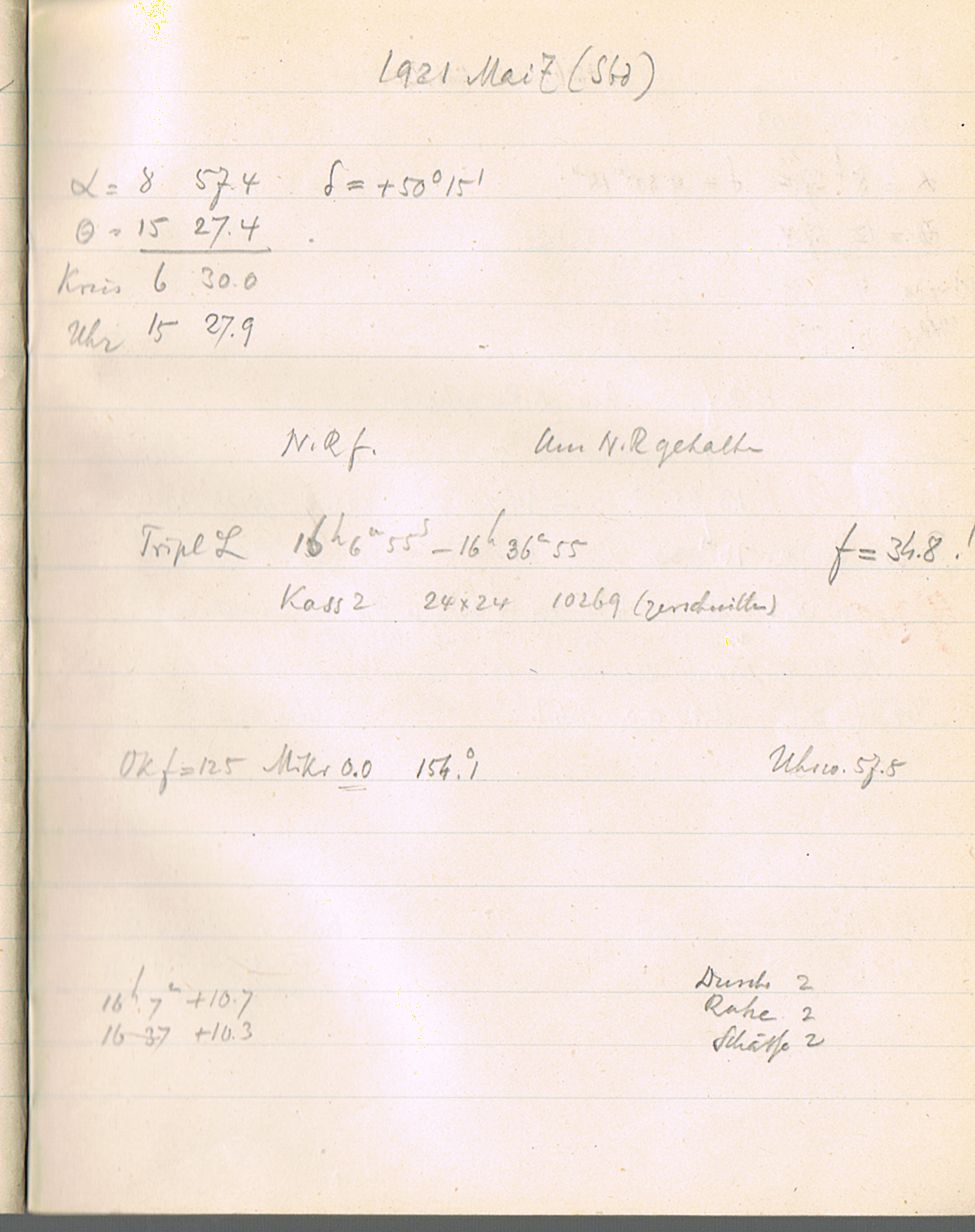 1921 Mai 7 (Std)
α = 8 57.4 δ = +50° 15'
θ = 15 27.4
Kreis 6 30.0
Uhr 15 27.9
N.R f. Um N.R gehalten
Tripl L 16h 6m 55s – 16h 36m 55 f = 34.8
Kass 2 24×24 10269 (zerschnitten)
Ok f = 125 Mikr 0.0 154.°1 Uhrw. 57.5
16h 7m +10.7 Durchs 2
16 37 +10.3 Ruhe 2
Schärfe 2